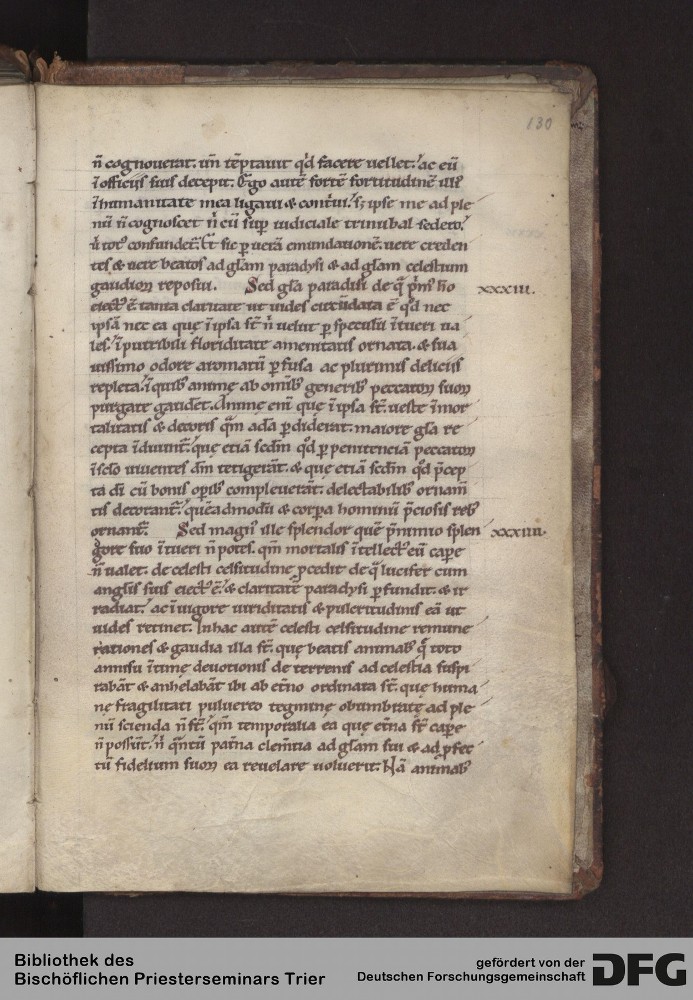 130
n̄ cognouerat. un̄ tēptauit qd̓ facere uellet. ac eū
ī officiis suis decepit. Ego autē fortē fortitudinē illiꝰ
ī humanitate mea ligaui & contͥui. sꝫ ipse me ad ple
nū n̄ cognoscet n̓ cū sup̄ iudiciale tribunal sedero.
&ͥ totꝰ confundet̄. Et sic ꝑ uerā emundationē. uere creden
tes & uere beatos ad gl̄am paradysi & ad gl̄am celestium
gaudioꝝ reposui. Sed gl̄a paradisi de q̄ pͥmꝰ ho
xxxiii.
eiectꝰ ē. tanta claritate ut uides circūdata ē qd̓ nec
ipsā nec ea que ī ipsa st̄ n̓ uelut ꝑ speculū ītueri ua
les. ī putribili floriditate amenitatis ornata. & sua
uissimo odore aromatū ꝑfusa ac plurimis deliciis
repleta. ī quibꝰ anime ab omībꝰ generibꝰ peccatoꝝ suoꝝ
purgate gaudēt. Anime eni que ī ipsa st̄ ueste īmor
talitatis & decoris qm̄ adā ꝑdiderat. maiore gl̄a re
cepta īduunt̄. que etiā scdm̄ qd̓ ꝑ penitenciā peccatoꝝ
ī sclo uiuentes dm̄ tetigerāt. & que etiā scdm̄ qd̓ p̄cep
ta di cū bonis opibꝰ compleuerāt. delectabilibꝰ ornam̄
tis decorant̄. quēadmodū & corpa hominū p̄ciosis rebꝰ
ornant̄. Sed magnꝰ ille splendor quē p̄nimio splen
xxxiiii.
dore suo ītueri n̄ potes. qm̄ mortalis ītellectꝰ eū capere
n̄ ualet. de celesti celsitudine ꝓcedit de q̄ lucifer cum
angl̄is suis eiectꝰ ē. & claritatē paradysi ꝑfundit. & ir
radiat. ac ī uigore uiriditatis & pulcritudinis eā ut
uides retinet. In hac autē celesti celsitudine remune
rationes & gaudia illa st̄. que beatis animabꝰ q̄ toto
annisu ītime deuotionis de terrenis ad celestia suspi
rabāt & anhelabāt ibi ab et̄no ordinata st̄. que huma
ne fragilitati puluereo tegmine obumbrate ad ple
nū scienda n̄ st̄. qm̄ temporalia ea que et̄na st̄ capere
n̄ possunt. n̓ qͣntū pat̄na clem̄tia ad gl̄am sui & ad ꝑfec
tū fidelium suoꝝ ea reuelare uoluerit. Nā animabꝰ
Bibliothek des
Bischöflichen Priesterseminars Trier
gefördert von der
Deutschen Forschungsgemeinschaft
DFG